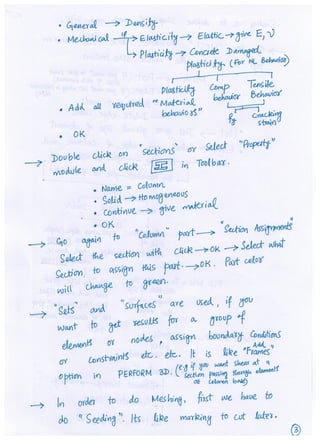 • General → Density.
• Mechanical → if Elasticity → Elastic → give E, ν
↳ Plasticity → Concrete Damaged
plasticity. (For NL Behavior)
Plasticity Comp behavior Tensile Behavior
• Add all required "Material behaviors"
fy cracking strain
• OK
→ Double click on "sections" or select "Property"
module and click in Toolbar.
• Name = Column
• Solid → Homogeneous
• continue → give material
• OK
→ Go again to "Column" part → "Section Assignments"
Select the section with click → OK → Select what
Section, to assign this part. → OK. Part color
will change to green.
→ "Sets" and "surfaces" are used, if you
want to get results for a group of
elements or nodes, assign boundary Conditions
or constraints etc. etc. It is like "Add Frames"
option in PERFORM 3D. (e.g if you want shear at a
section passing through elements
at column base)
→ In order to do Meshing, first we have to
do "Seeding". Its like marking to cut later.
3